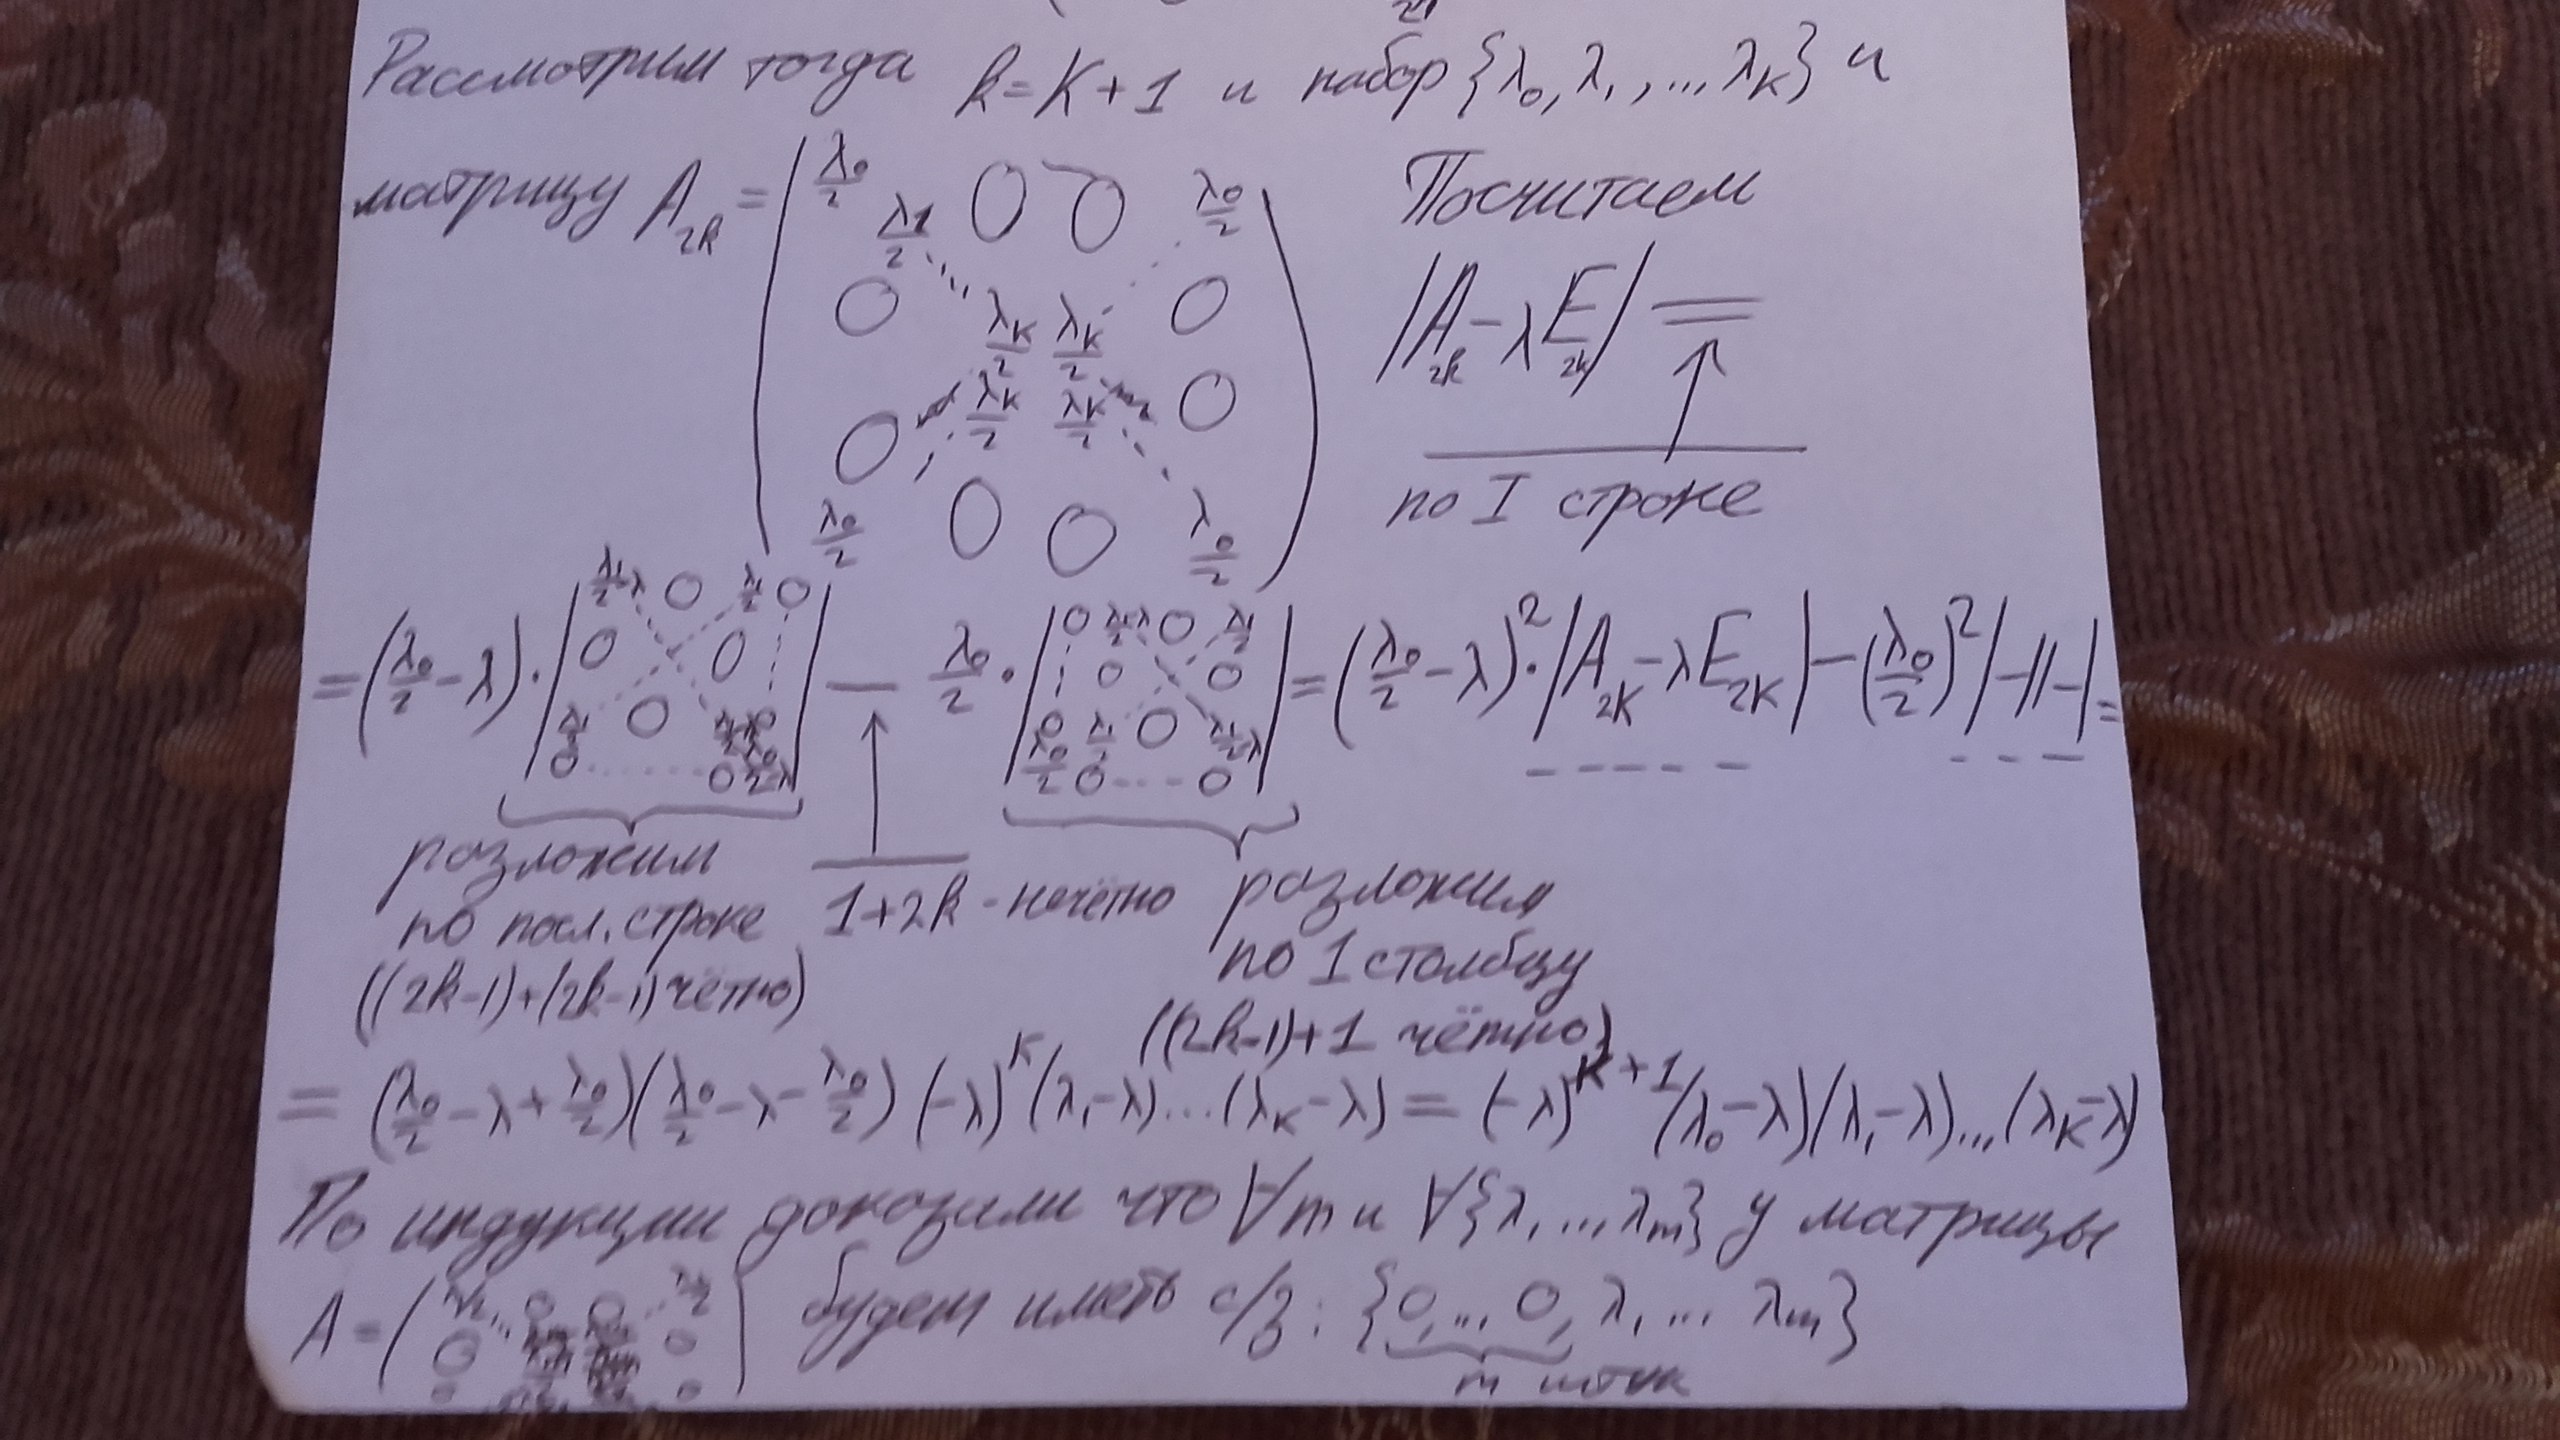 Рассмотрим тогда k=K+1 и набор {λ₀, λ₁, ... λ_K} и
матрицу A_{2k} = ( λ₀/2 0 0 λ₀/2
λ₁/2
0 λ_K/2 λ_K/2 0
0 λ_K/2 λ_K/2 0
λ₀/2 0 0 λ₀/2 )
Посчитаем
|A_{2k} - λE_{2k}| =
по I строке
= (λ₀/2 - λ) · | λ₁/2-λ 0 λ₁/2 0
0 0
λ₁/2 0 λ₁/2-λ 0
0 ... 0 λ₀/2-λ | - λ₀/2 · | 0 λ₁/2-λ 0 λ₁/2
0 0
0 λ₁/2 0 λ₁/2-λ
λ₀/2 0 ... 0 | = (λ₀/2 - λ)² · |A_{2K} - λE_{2K}| - (λ₀/2)² | -||- | =
разложим
по посл. строке
((2k-1)+(2k-1) чётно)
1+2k - нечётно
разложим
по 1 столбцу
((2k-1)+1 чётно)
= (λ₀/2 - λ + λ₀/2)(λ₀/2 - λ - λ₀/2) (-λ)^K (λ₁-λ)...(λ_K-λ) = (-λ)^{K+1} (λ₀-λ)(λ₁-λ)...(λ_K-λ)
По индукции доказали что ∀m и ∀{λ₁ ... λ_m} у матрицы
A = ( будет иметь с/з: {0, ... 0, λ₁ ... λ_m}
m штук